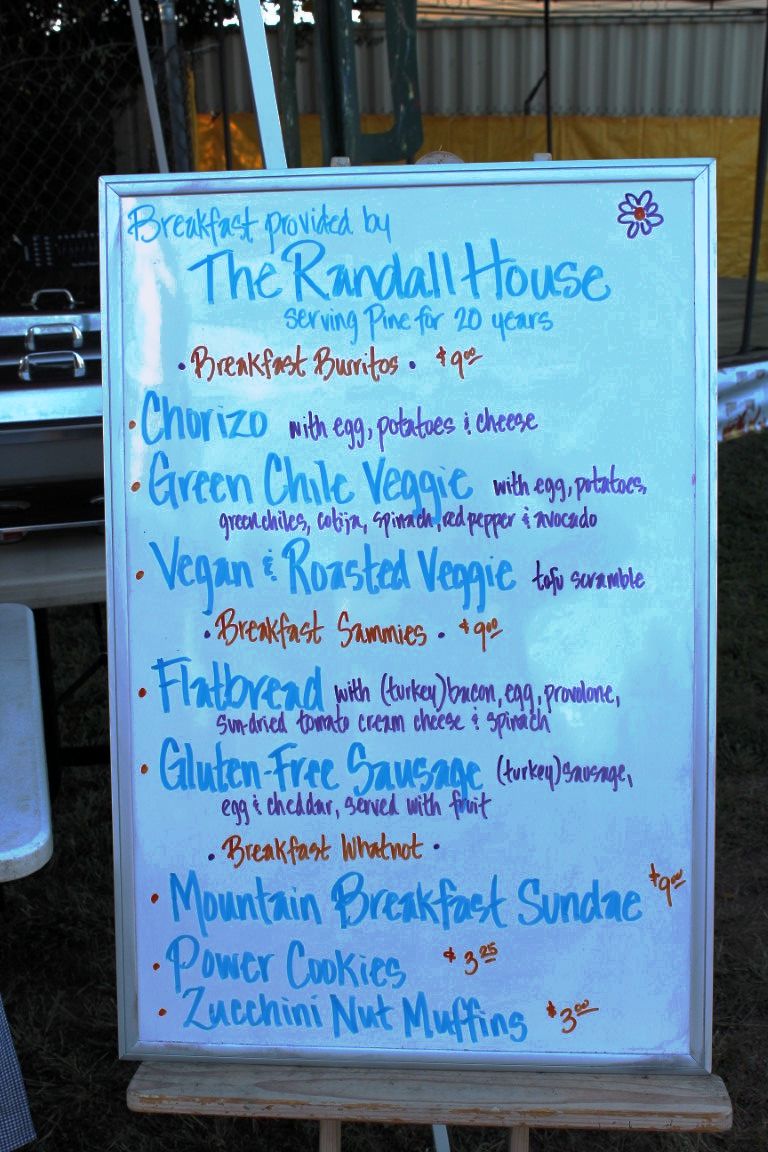 Breakfast provided by
The Randall House
serving Pine for 20 years
• Breakfast Burritos • $9.00
• Chorizo with egg, potatoes & cheese
• Green Chile Veggie with egg, potatoes,
green chiles, cotija, spinach, red pepper & avocado
• Vegan & Roasted Veggie tofu scramble
• Breakfast Sammies • $9.00
• Flatbread with (turkey) bacon, egg, provolone,
sun-dried tomato cream cheese & spinach
• Gluten-Free Sausage (turkey) sausage,
egg & cheddar, served with fruit
• Breakfast Whatnot •
• Mountain Breakfast Sundae $9.00
• Power Cookies $3.25
• Zucchini Nut Muffins $3.00